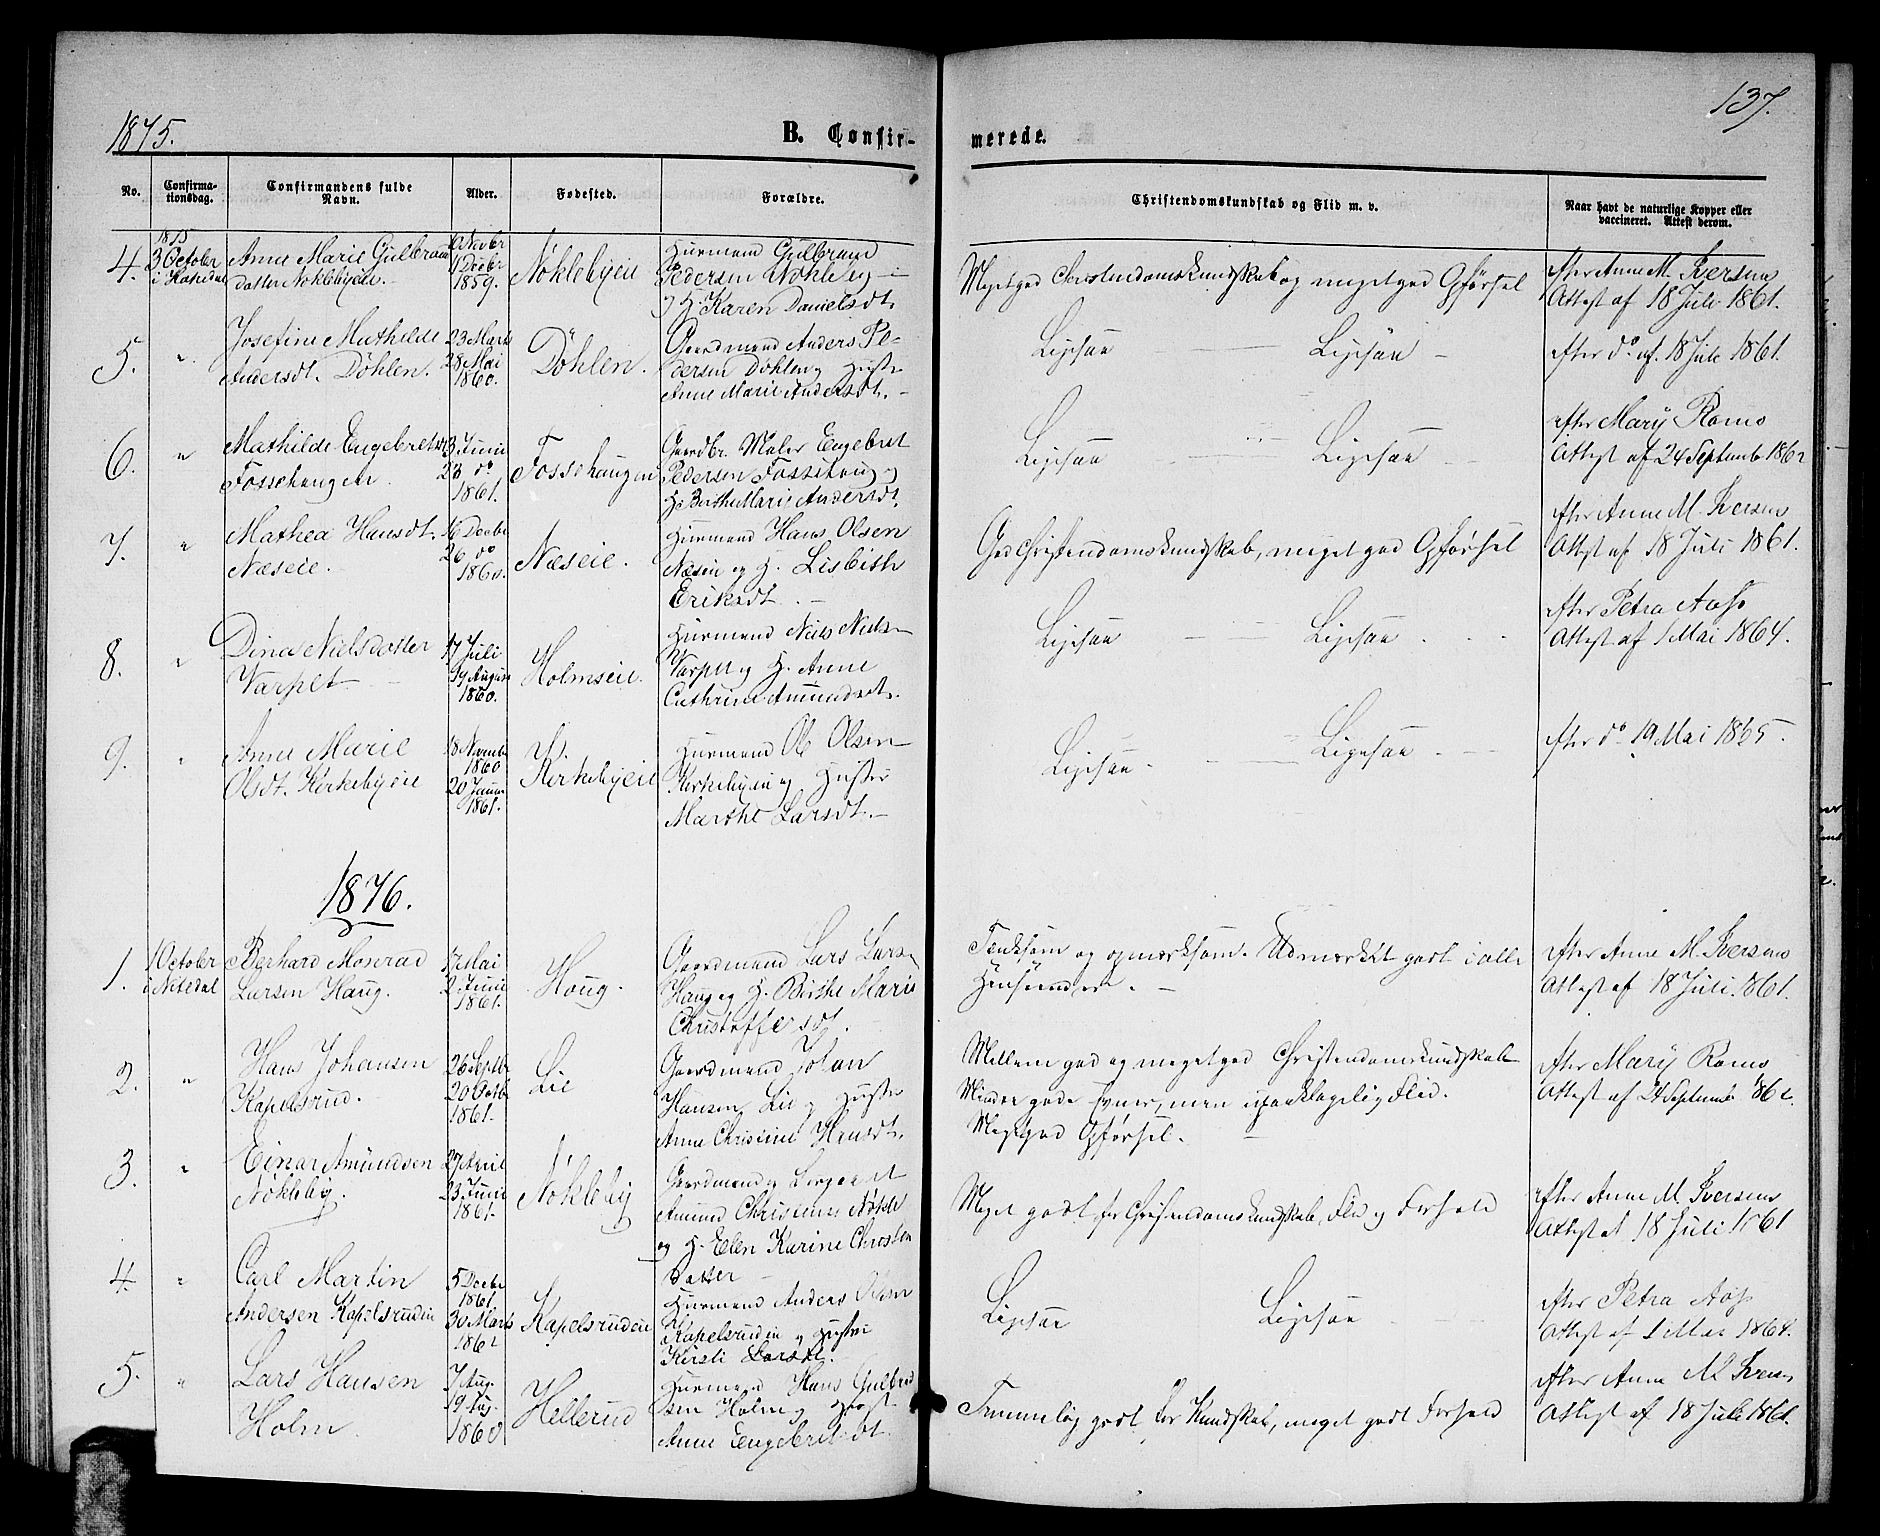 137.
1875.
B. Confir-
merede.
No.
Confirma-
tionsdag.
Confirmandens fulde
Navn.
Alder.
Fødested.
Forældre.
Christendomskundskab og Flid m. v.
Naar havt de naturlige Kopper eller
vaccineret. Attest derom.
1875
4. 3 October
i Hakedal
Anne Marie Gulbrands
datter Nøklebyeie.
6 Novbr
11 Decbr
1859.
Nøklebyeie
Huusmand Gulbrand
Pedersen Nøkleby-
og H. Karen Danielsdt.
Meget god Christendomskundskab og meget god Opførsel
efter Anne M. Iversens
Attest af 18 Juli 1861.
5. "
Josefine Mathilde
Andersdt. Døhlen.
23 Marts
28 Mai
1860.
Døhlen.
Gaardmand Anders Pe-
dersen Døhlen og Hustr
Anne Marie Andersdt.
Ligesaa Ligesaa
efter do. af. 18 Juli 1861.
6. "
Mathilde Engebretsdt
Fossehaugen.
3 Juni
23 do
1861.
Fossehaugen
Gaardbr. Maler Engebret
Pedersen Fossehaug og
H. Berthe Marie Andersdt.
Ligesaa Ligesaa
efter Mary Roms
Attest af 24 Septemb 1862
7. "
Mathea Hansdt.
Næseie.
16 Decbr
26 do
1860.
Næseie.
Huusmand Hans Olsen
Næseie og H. Lisbeth
Eriksdt.
God Christendomskundskab, meget god Opførsel
efter Anne M. Iversens
Attest af 18 Juli 1861.
8. "
Dina Nielsdatter
Varpet
17 Juli
19 August
1860.
Holmseie.
Huusmand Niels Nielsen
Varpet og H. Anne
Cathrine Amundsdt.
Ligesaa Ligesaa
efter Petra Aas's
Attest af 1 Mai 1864.
9. "
Anne Marie
Olsdt. Kirkebyeie
18 Novemb
1860
20 Januar
1861.
Kirkebyeie
Huusmand Ole Olsen
Kirkebyeie og Hustr
Marthe Larsdt.
Ligesaa. Ligesaa
efter do 19 Mai 1865.
1876.
1. 1 October
i Nitedal
Berhard Monrad
Larsen Haug.
17 Mai
2 Juni
1861.
Haug.
Gaardmand Lars Larsen
Haug og H. Birthe Marie
Christoffersdt.
Tænksom og opmærksom. Udmærket godt i alle
Henseender.
efter Anne M. Iversens
Attest af 18 Juli 1861.
2. "
Hans Johansen
Kapelsrud.
26 Septbr
20 Octb
1861.
Lie
Gaardmand Johan
Hansen Lie og Hustr
Anne Christine Hansdt.
Mellem god og meget god Christendomskundskab
Mindre gode Evner, men upaaklagelig Flid.
Meget god Opførsel.
efter Mary Roms
Attest af 24 Septemb 1862.
3. "
Einar Amundsen
Nøkleby.
27 April
23 Juni
1861.
Nøkleby
Gaardmand og
Amund Christensen Nøkle
og H. Elen Karine Christen
datter
Meget godt for Christendomskundskab, Flid og Forhold
efter Anne M. Iversens
Attest af 18 Juli 1861
4. "
Carl Martin
Andersen Kapelsrudeie
5 Decbr
1861
30 Marts
1862
Kapelsrudeie
Huusmand Anders Olsen
Kapelsrudeie og Hustru
Kirsti Larsdt.
Ligesaa Ligesaa
efter Petra Aas's
Attest af 1 Mai 1864.
5. "
Lars Hansen
Holm
7 Aug.
19 Aug.
1860
Hellerud
Huusmand Hans Gulbrand
sen Holm og Hust.
Anne Engebretsdt.
Temmelig godt for Kundskab, meget godt Forhold
efter Anne M. Iversens
Attest af 18 Juli 1861.